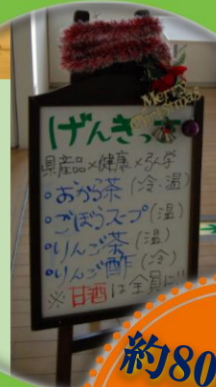 Merry
Christmas
げんきっ
県産品×健康×弘学
・おから茶(冷・温)
・ごぼうスープ(温)
・りんご茶(温)
・りんご酢(冷)
※甘酒は全員に!!
約80